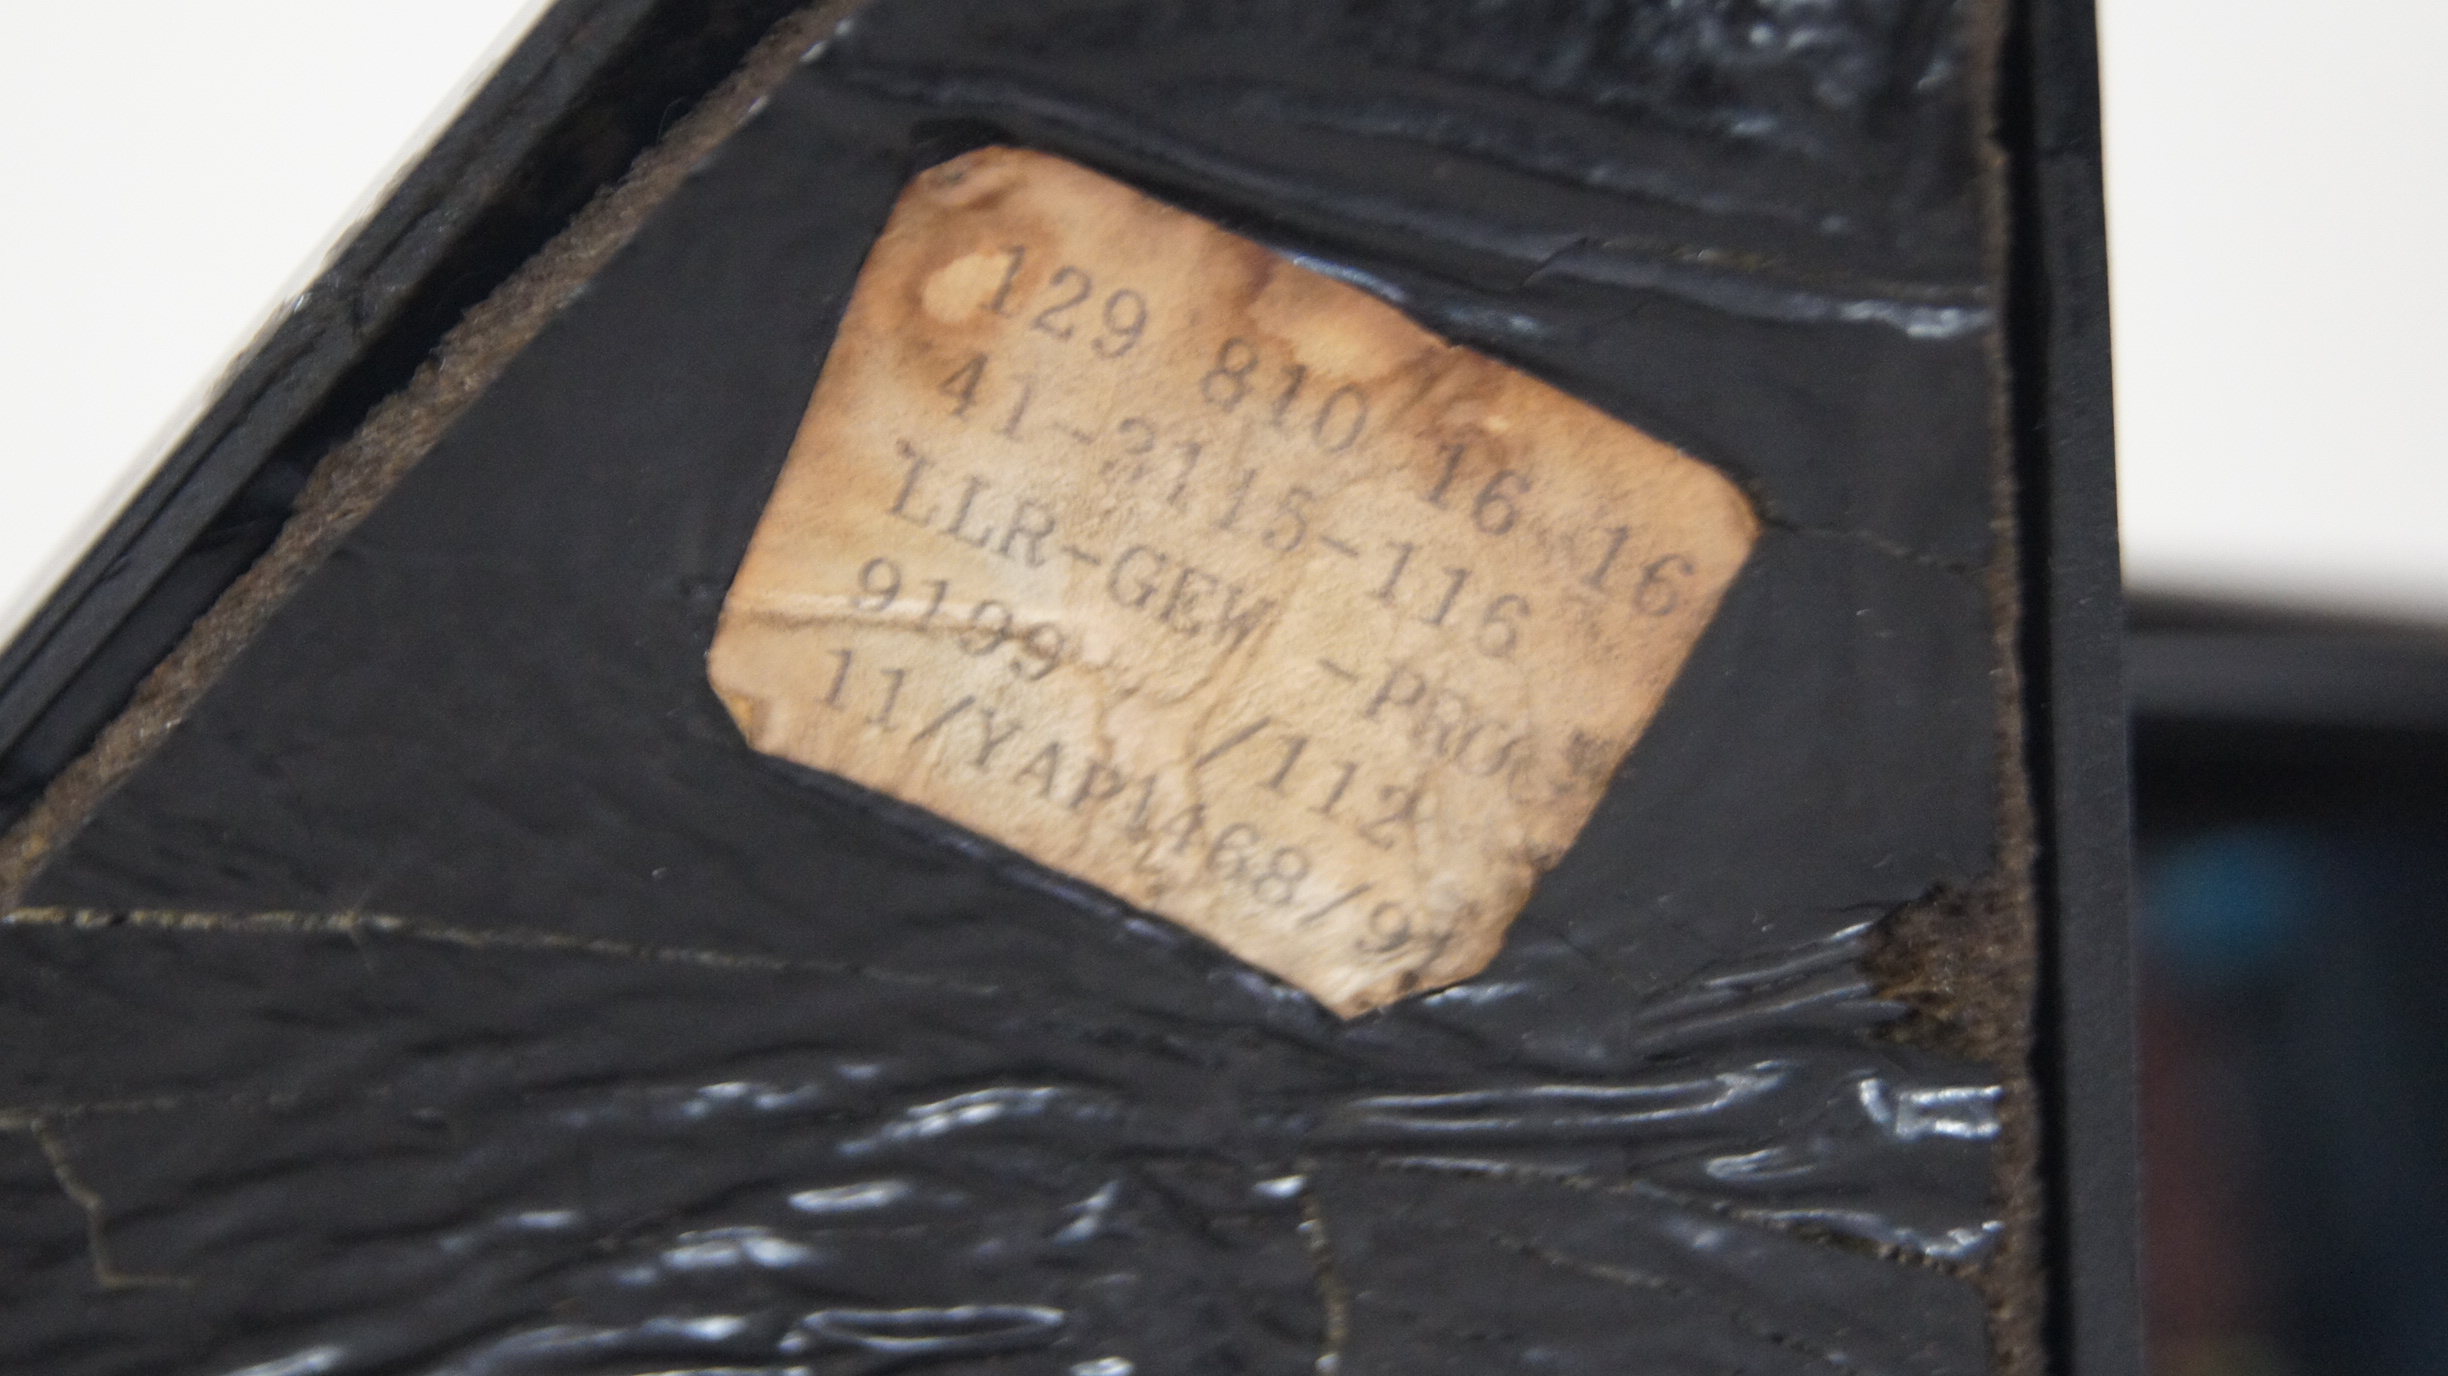 129 810 16 16
41-3115-116
LLR-GEW -PRO
9199 /112
11/YAP1468/91